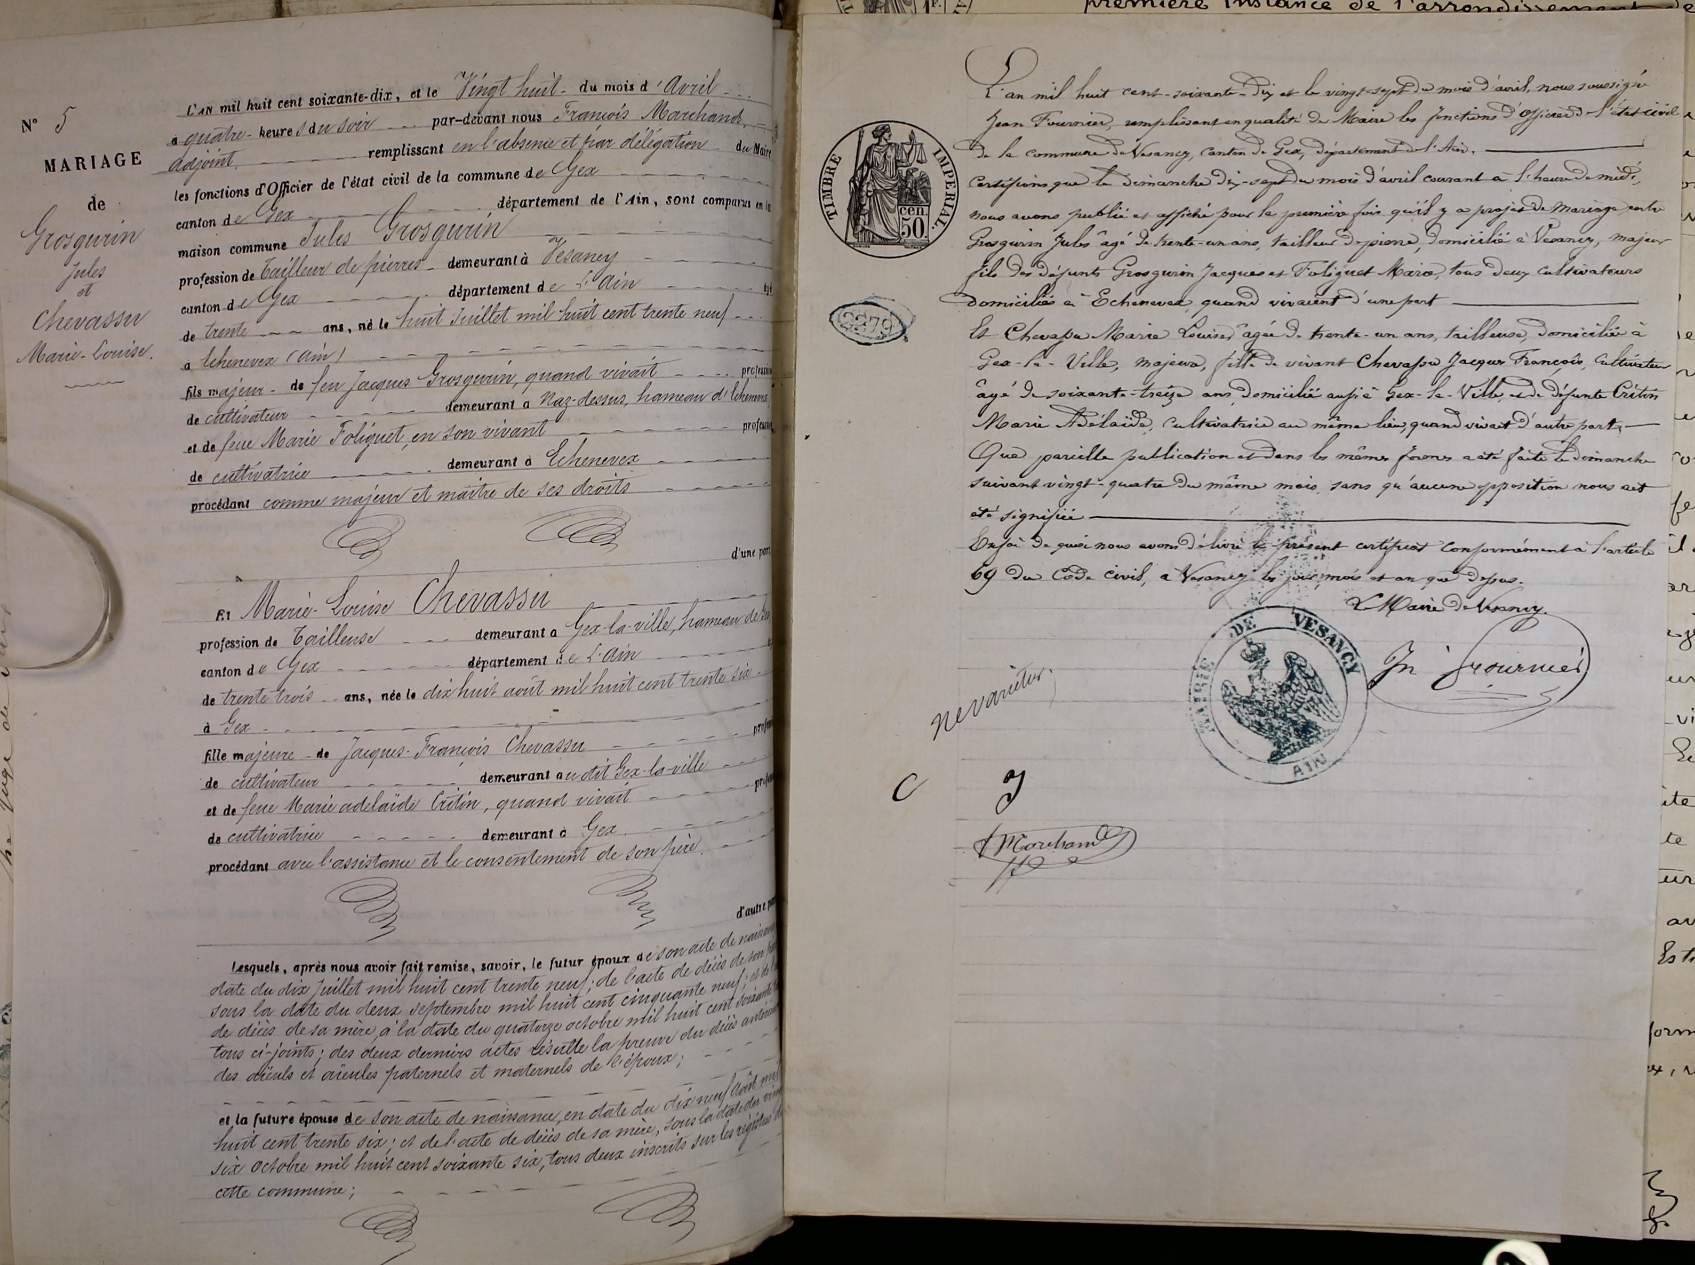 N° 5
MARIAGE
de
Grosgurin
Jules
et
Chevassu
Marie-Louise.
L'AN mil huit cent soixante-dix, et le Vingt huit du mois d'Avril
a quatre heures du soir par-devant nous François Marchand,
adjoint, remplissant en l'absence et par délégation du Maire
les fonctions d'Officier de l'état civil de la commune de Gex
canton de Gex département de l'Ain, sont comparus en la
maison commune Jules Grosgurin
profession de Tailleur de pierres demeurant à Vésancy
canton de Gex département de L'Ain
de trente ans, né le huit Juillet mil huit cent trente neuf
a Echenevex (Ain)
fils majeur de feu Jacques Grosgurin, quand vivait profession
de cultivateur demeurant a Naz-dessus, hameau d'Echenevex
et de feue Marie Foliguet, en son vivant profession
de cultivatrice demeurant à Echenevex
procédant comme majeur et maître de ses droits
d'une part
Et Marie-Louise Chevassu
profession de Tailleuse demeurant a Gex-la-ville, hameau de Gex
canton de Gex département de L'Ain
de trente trois ans, née le dix huit août mil huit cent trente six
à Gex
fille majeure de Jacques-François Chevassu
de cultivateur demeurant audit Gex-la-ville
et de feue Marie adelaïde Critin, quand vivait
de cultivatrice demeurant à Gex
procédant avec l'assistance et le consentement de son père.
d'autre part
Lesquels, après nous avoir fait remise, savoir, le futur époux de son acte de naissance
date du dix Juillet mil huit cent trente neuf; de l'acte de décès de son
sous la date du deux septembre mil huit cent cinquante neuf; et de
de décès de sa mère, à la date du quatorze octobre mil huit cent soixante
tous ci-joints; des deux derniers actes résulte la preuve du décès
des aïeuls et aïeules paternels et maternels de l'époux;
et la future épouse de son acte de naissance, en date du dix neuf août mil
huit cent trente six; et de l'acte de décès de sa mère, sous la date du
six octobre mil huit cent soixante six, tous deux inscrits sur les régistres
cette commune;
première instance de l'arrondissement de
TIMBRE IMPÉRIAL.
50 cen.
2279
L'an mil huit cent-soixante-dix et le vingt-sept du mois d'avril, nous soussigné
Jean Fournier, remplissant en qualité de Maire les fonctions d'Officier de l'état civil
de la commune de Vesancy, Canton de Gex, département de l'Ain.
Certifions que le dimanche dix-sept du mois d'avril courant à l'heure de midi,
nous avons publié et affiché pour la première fois qu'il y a projet de mariage entre
Grosgurin Jules âgé de trente-un ans, tailleur de pierre, domicilié à Vesancy, majeur
fils des défunts Grosgurin Jacques et Foliguet Marie, tous deux cultivateurs
domiciliés à Echenevex, quand vivaient d'une part
Et Chevassu Marie Louise âgée de trente-un ans, tailleuse, domiciliée à
Gex-la-Ville, majeure, fille de vivant Chevassu Jacques François, Cultivateur
âgé de soixante-treize ans, domicilié aussi à Gex-la-Ville, et de défunte Critin
Marie Adélaïde, Cultivatrice au même lieu, quand vivait d'autre part.
Que pareille publication et dans les mêmes formes a été faite le dimanche
suivant vingt-quatre du même mois, sans qu'aucune opposition nous ait
été signifiée
En foi de quoi nous avons délivré le présent certificat conformément à l'article
69 du Code civil, a Vesancy les jour, mois et an que dessus.
Le Maire de Vesancy.
Jn Fournier
MAIRIE DE VESANCY
AIN
ne varietur.
C J
Marchand